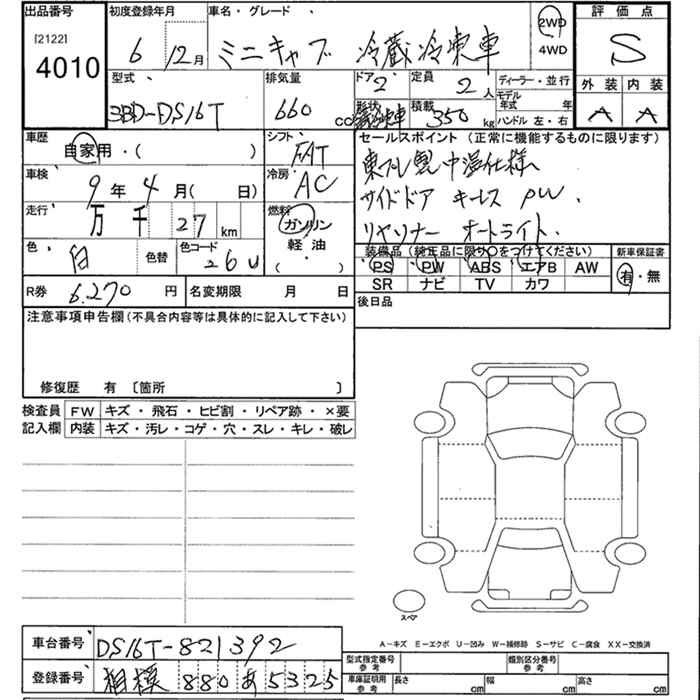 出品番号 初度登録年月 車名・グレード 評価点
[2122] 4010 6 12月 ミニキャブ 冷蔵冷凍車 2WD 4WD S
型式 排気量 ドア 2 定員 2人 ディーラー・並行 外装 内装
3BD-DS16T 660 cc 形状 積載 350 kg モデル年式 年 A A
ハンドル 左・右
車歴 自家用・( ) シフト FAT セールスポイント(正常に機能するものに限ります)
車検 9年 4月( 日) 冷房 AC 東プレ製中温仕様
サイドドア キーレス PW.
走行 万 千 27 km 燃料 ガソリン 軽油 ( ) リヤソナー オートライト.
色 白 色替 色コード 26U 装備品(純正品に限り○をつけてください) 新車保証書
PS PW ABS エアB AW 有・無
R券 6,270 円 名変期限 月 日 SR ナビ TV カワ
後日品
注意事項申告欄(不具合内容等は具体的に記入して下さい)
修復歴 有〔箇所 〕
検査員 FW キズ・飛石・ヒビ割・リペア跡・×要
記入欄 内装 キズ・汚レ・コゲ・穴・スレ・キレ・破レ
スペア
A-キズ E-エクボ U-凹み W-補修跡 S-サビ C-腐食 XX-交換済
車台番号 DS16T-821392 型式指定番号 参考 類別区分番号 参考
登録番号 相模 880 あ 5325 車庫証明用 参考 長さ cm 幅 cm 高さ cm